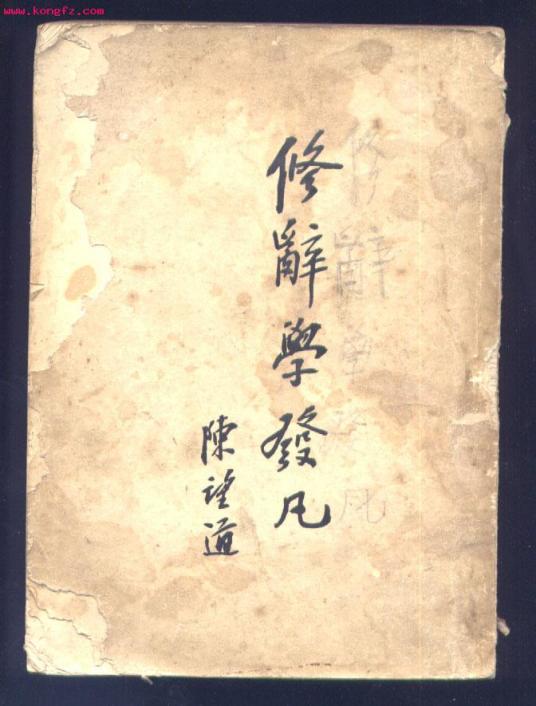 www.kongfz.com
修辭學發凡
修辭學發凡
陳望道